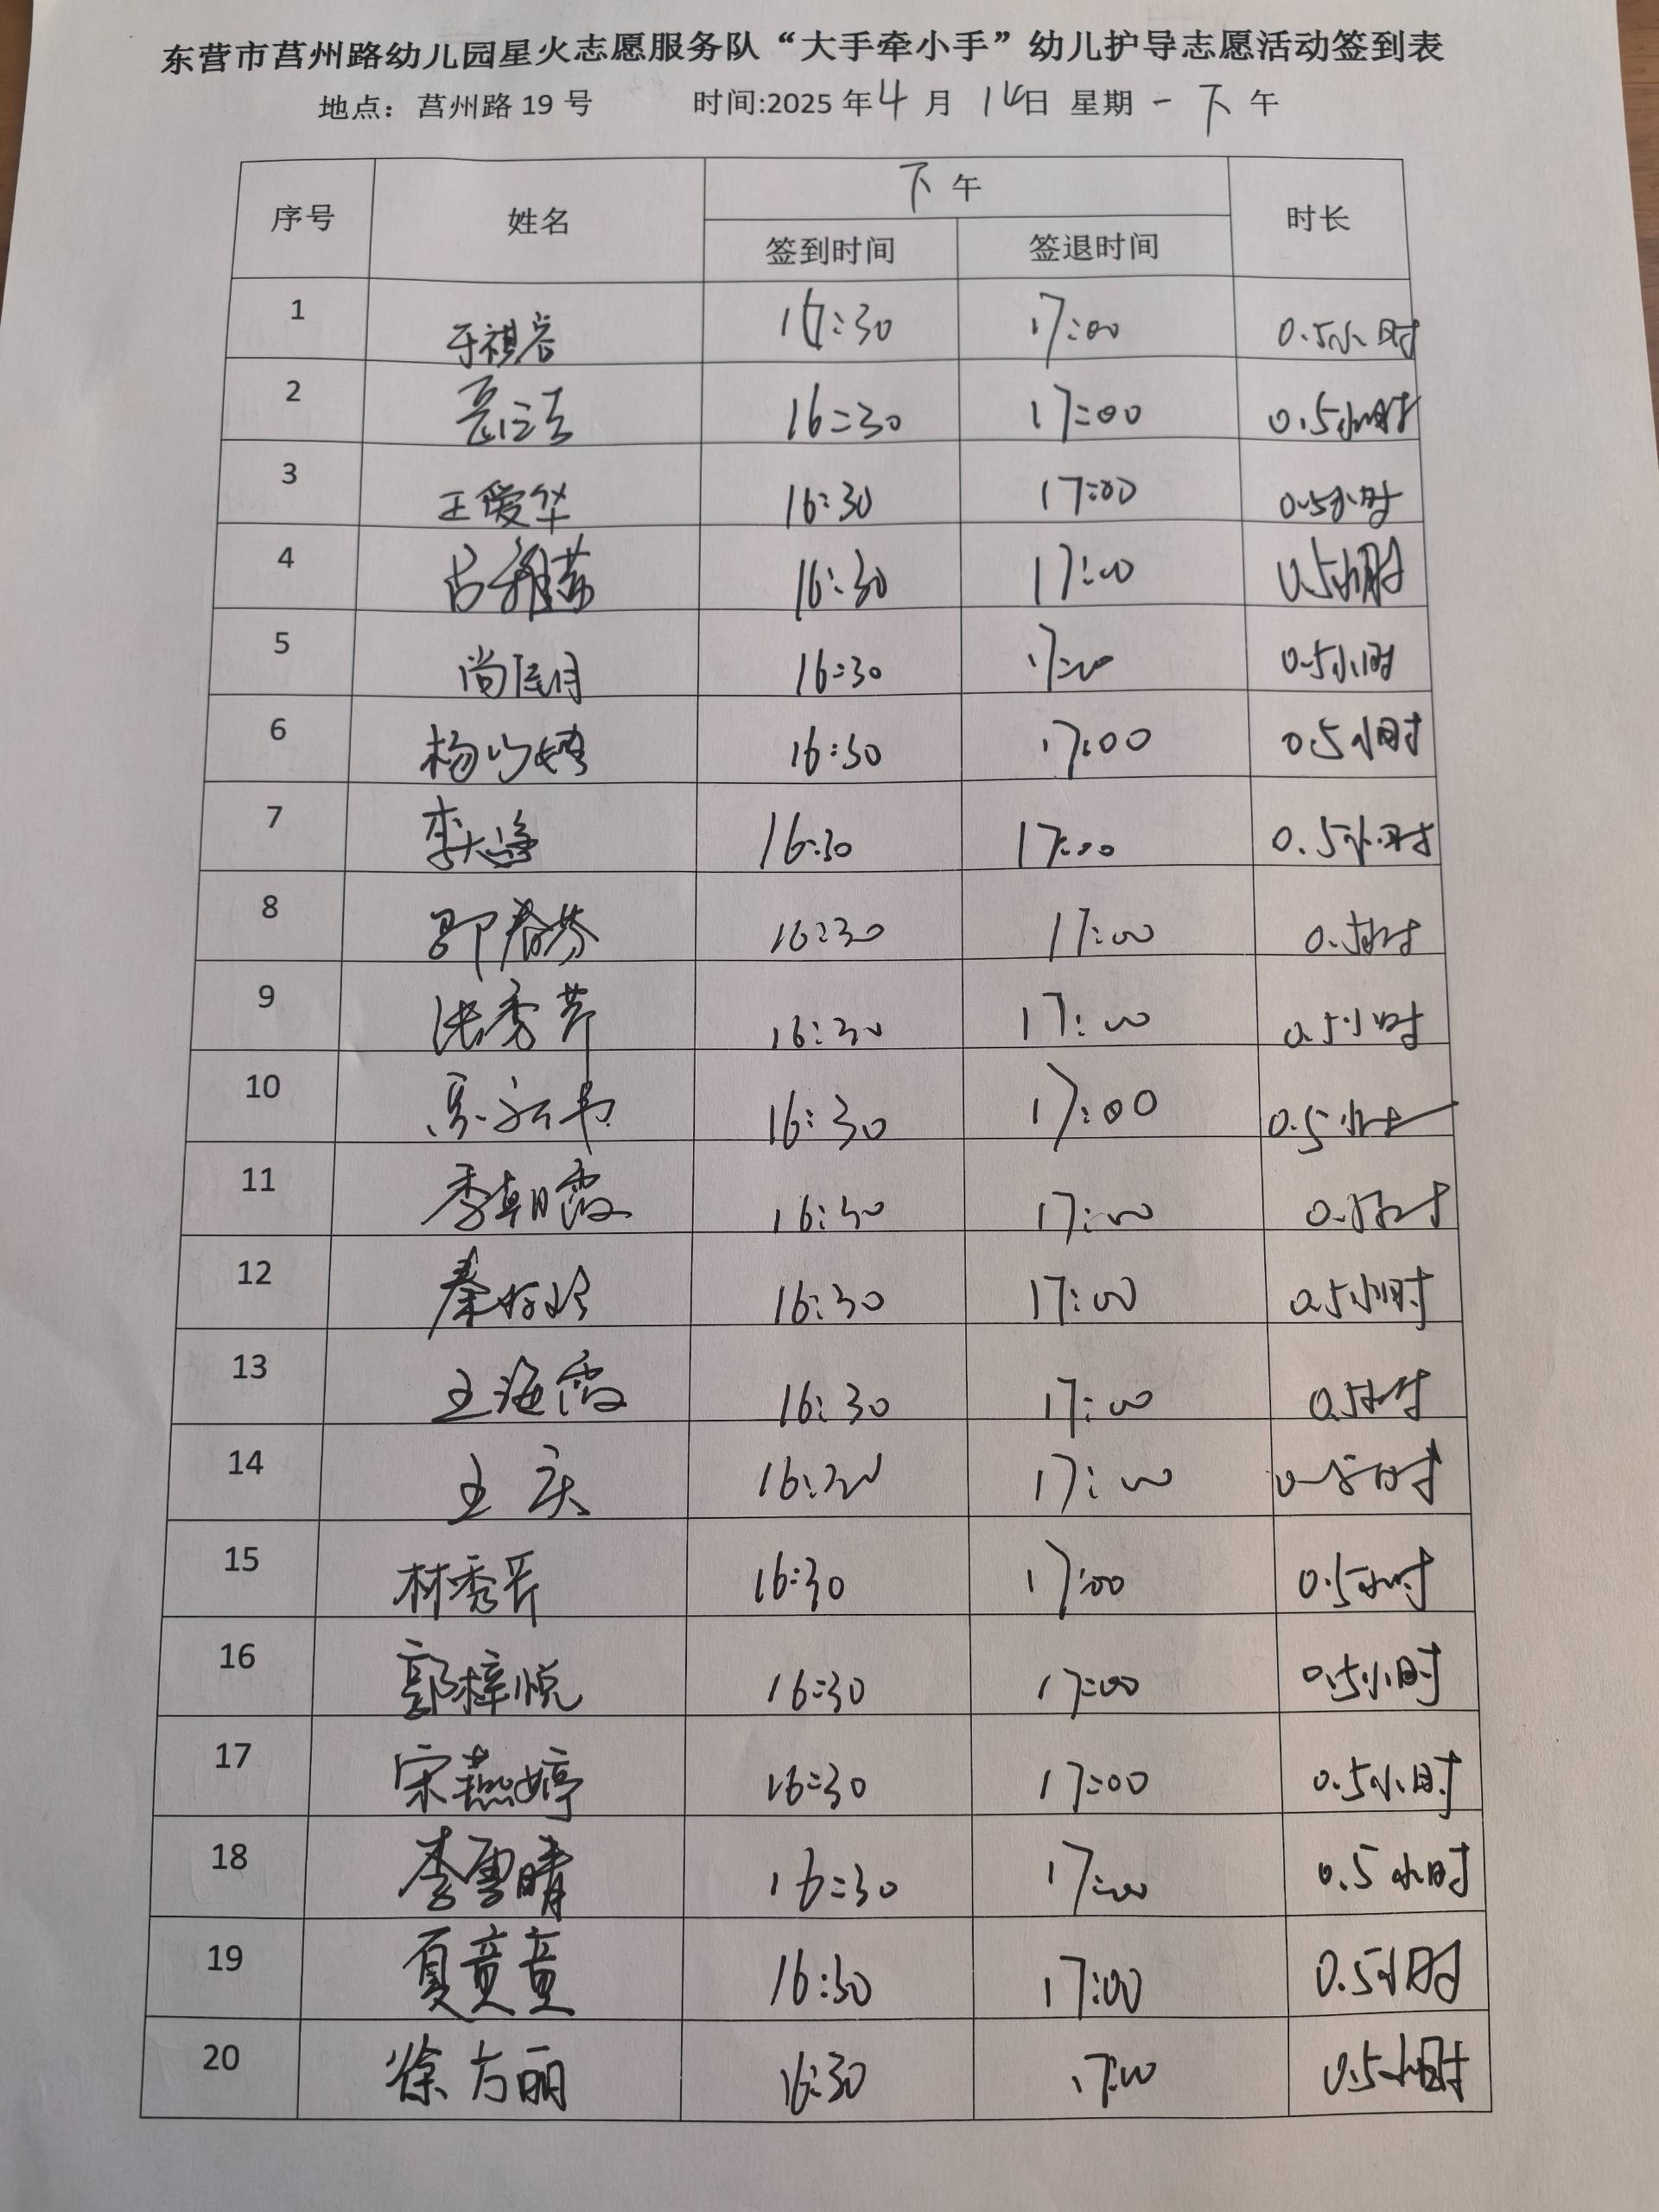 东营市莒州路幼儿园星火志愿服务队“大手牵小手”幼儿护导志愿活动签到表
地点：莒州路 19 号 时间:2025 年 4 月 14日 星期 一 下 午
序号 姓名 下 午 时长
签到时间 签退时间
1 于祺容 16:30 17:00 0.5小时
2 16:30 17:00 0.5小时
3 王爱华 16:30 17:00 0.5小时
4 16:30 17:00 0.5小时
5 16:30 17:00 0.5小时
6 16:30 17:00 0.5小时
7 16:30 17:00 0.5小时
8 邵春芬 16:30 17:00 0.5小时
9 张秀芹 16:30 17:00 0.5小时
10 16:30 17:00 0.5小时
11 李朝霞 16:30 17:00 0.5小时
12 16:30 17:00 0.5小时
13 王海霞 16:30 17:00 0.5小时
14 王庆 16:30 17:00 0.5小时
15 林秀芹 16:30 17:00 0.5小时
16 郭梓悦 16:30 17:00 0.5小时
17 宋燕婷 16:30 17:00 0.5小时
18 李雪晴 16:30 17:00 0.5小时
19 夏童童 16:30 17:00 0.5小时
20 徐方丽 16:30 17:00 0.5小时